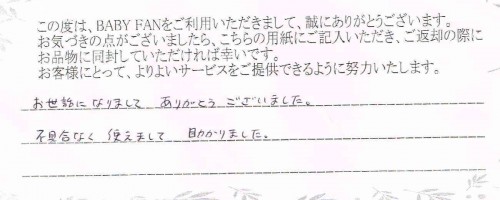 この度は、BABY FANをご利用いただきまして、誠にありがとうございます。
お気づきの点がございましたら、こちらの用紙にご記入いただき、ご返却の際に
お品物に同封していただければ幸いです。
お客様にとって、よりよいサービスをご提供できるように努力いたします。
お世話になりまして ありがとう ございました。
不具合なく 使えまして 助かりました。